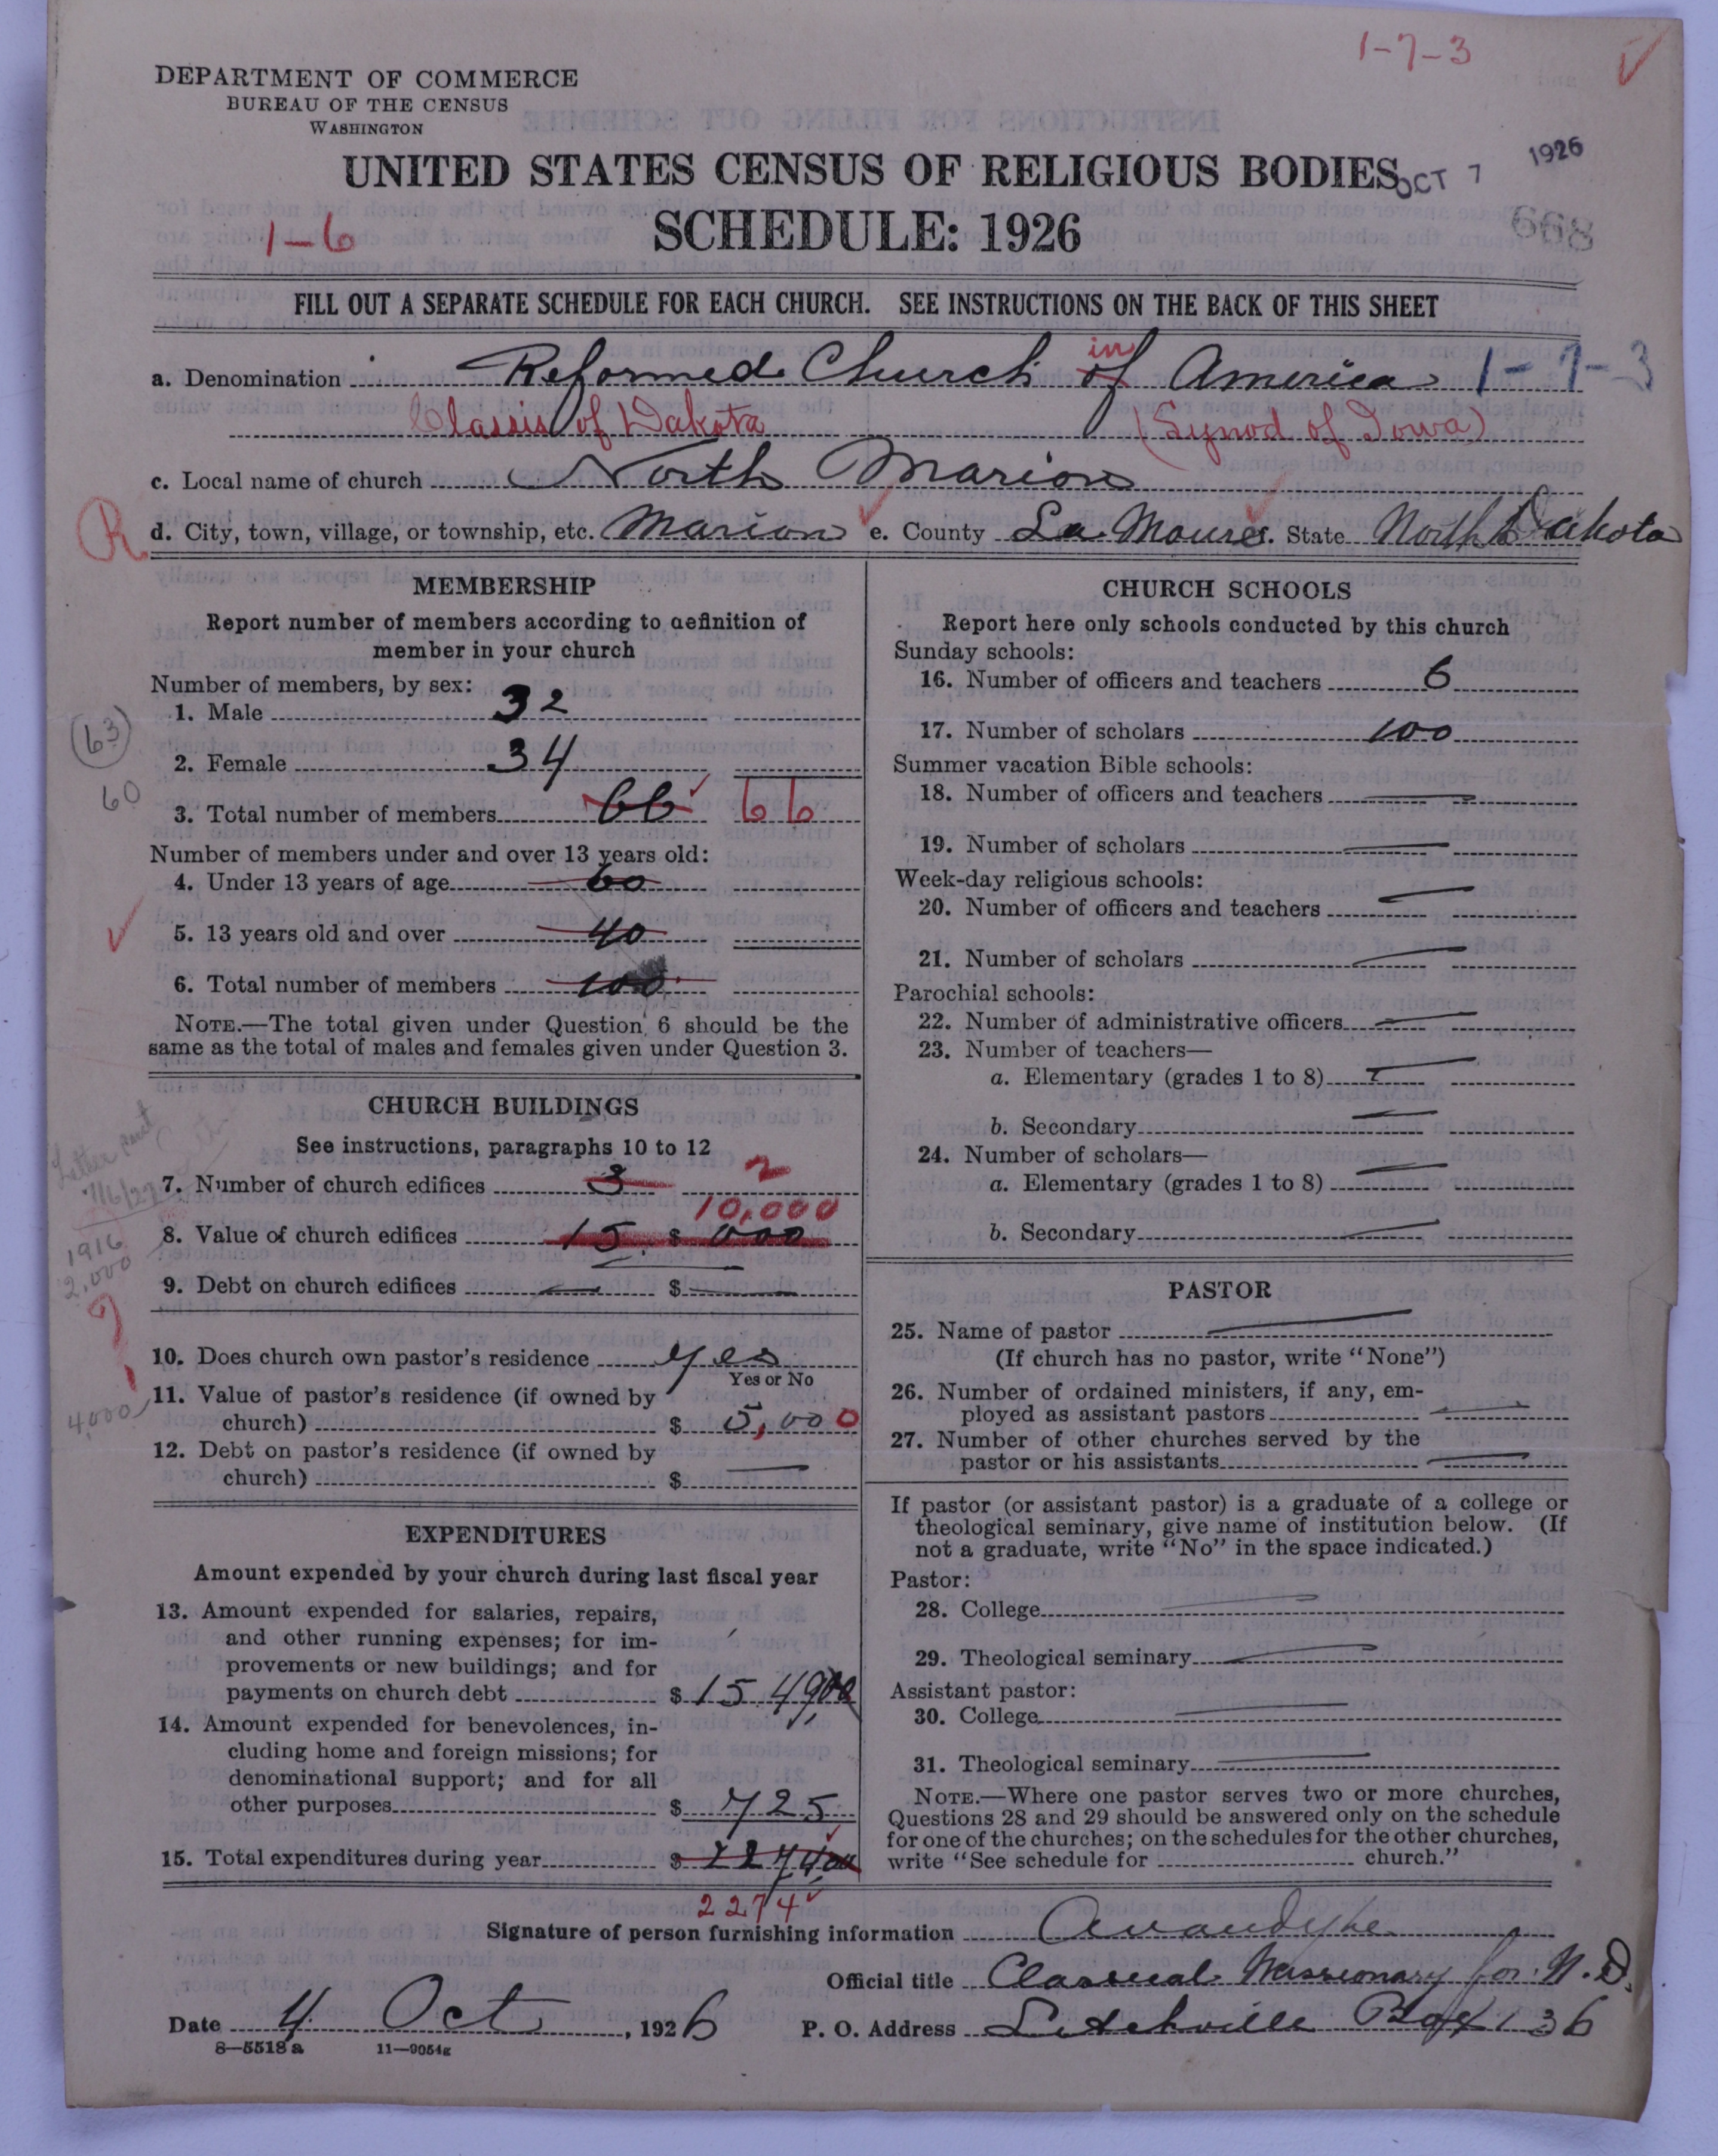 1-7-3
DEPARTMENT OF COMMERCE
BUREAU OF THE CENSUS
WASHINGTON
UNITED STATES CENSUS OF RELIGIOUS BODIES
OCT 7 1926
1-6
SCHEDULE: 1926
668
FILL OUT A SEPARATE SCHEDULE FOR EACH CHURCH. SEE INSTRUCTIONS ON THE BACK OF THIS SHEET
a. Denomination Reformed Church of in America 1-7-3
Classis of Dakota (Synod of Iowa)
c. Local name of church North Marion
R d. City, town, village, or township, etc. Marion e. County La Moure f. State North Dakota
MEMBERSHIP
Report number of members according to definition of
member in your church
Number of members, by sex:
1. Male 32
(63)
2. Female 34
60
3. Total number of members 66 66
Number of members under and over 13 years old:
4. Under 13 years of age 60
5. 13 years old and over 40
6. Total number of members 100
NOTE.—The total given under Question 6 should be the
same as the total of males and females given under Question 3.
CHURCH BUILDINGS
See instructions, paragraphs 10 to 12
7. Number of church edifices 3 2
10,000
8. Value of church edifices 15 $ 000
1916
2,000
9. Debt on church edifices — $ —
10. Does church own pastor's residence yes
Yes or No
11. Value of pastor's residence (if owned by
church) $ 5,000
4,000
12. Debt on pastor's residence (if owned by
church) $ —
EXPENDITURES
Amount expended by your church during last fiscal year
13. Amount expended for salaries, repairs,
and other running expenses; for im-
provements or new buildings; and for
payments on church debt $ 15 49,00
14. Amount expended for benevolences, in-
cluding home and foreign missions; for
denominational support; and for all
other purposes $ 725
15. Total expenditures during year $ 2274,00
2274
CHURCH SCHOOLS
Report here only schools conducted by this church
Sunday schools:
16. Number of officers and teachers 6
17. Number of scholars 100
Summer vacation Bible schools:
18. Number of officers and teachers —
19. Number of scholars —
Week-day religious schools:
20. Number of officers and teachers —
21. Number of scholars —
Parochial schools:
22. Number of administrative officers —
23. Number of teachers—
a. Elementary (grades 1 to 8) —
b. Secondary —
24. Number of scholars—
a. Elementary (grades 1 to 8) —
b. Secondary —
PASTOR
25. Name of pastor —
(If church has no pastor, write "None")
26. Number of ordained ministers, if any, em-
ployed as assistant pastors —
27. Number of other churches served by the
pastor or his assistants —
If pastor (or assistant pastor) is a graduate of a college or
theological seminary, give name of institution below. (If
not a graduate, write "No" in the space indicated.)
Pastor:
28. College —
29. Theological seminary —
Assistant pastor:
30. College —
31. Theological seminary —
NOTE.—Where one pastor serves two or more churches,
Questions 28 and 29 should be answered only on the schedule
for one of the churches; on the schedules for the other churches,
write "See schedule for church."
Signature of person furnishing information
Official title Classical Missionary for N.D.
Date 4 Oct, 1926 P. O. Address Litchville Box 136
8—5518a 11—9054g